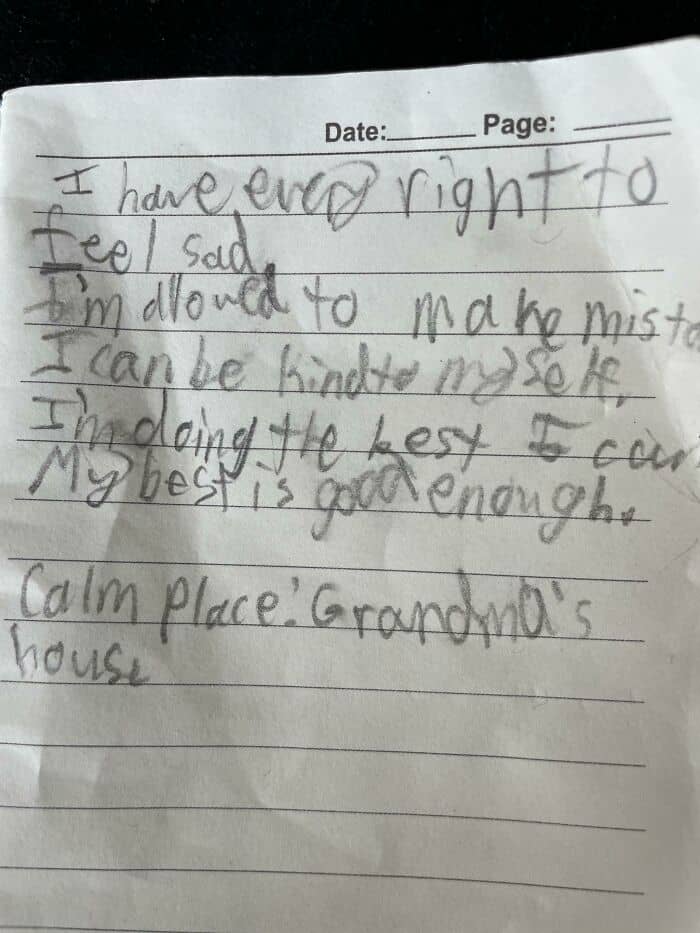 Date:______ Page: ______
I have every right to
feel sad.
I'm allowed to make mista
I can be kind to myself.
I'm doing the best I can
My best is good enough.
Calm place: Grandma's
house